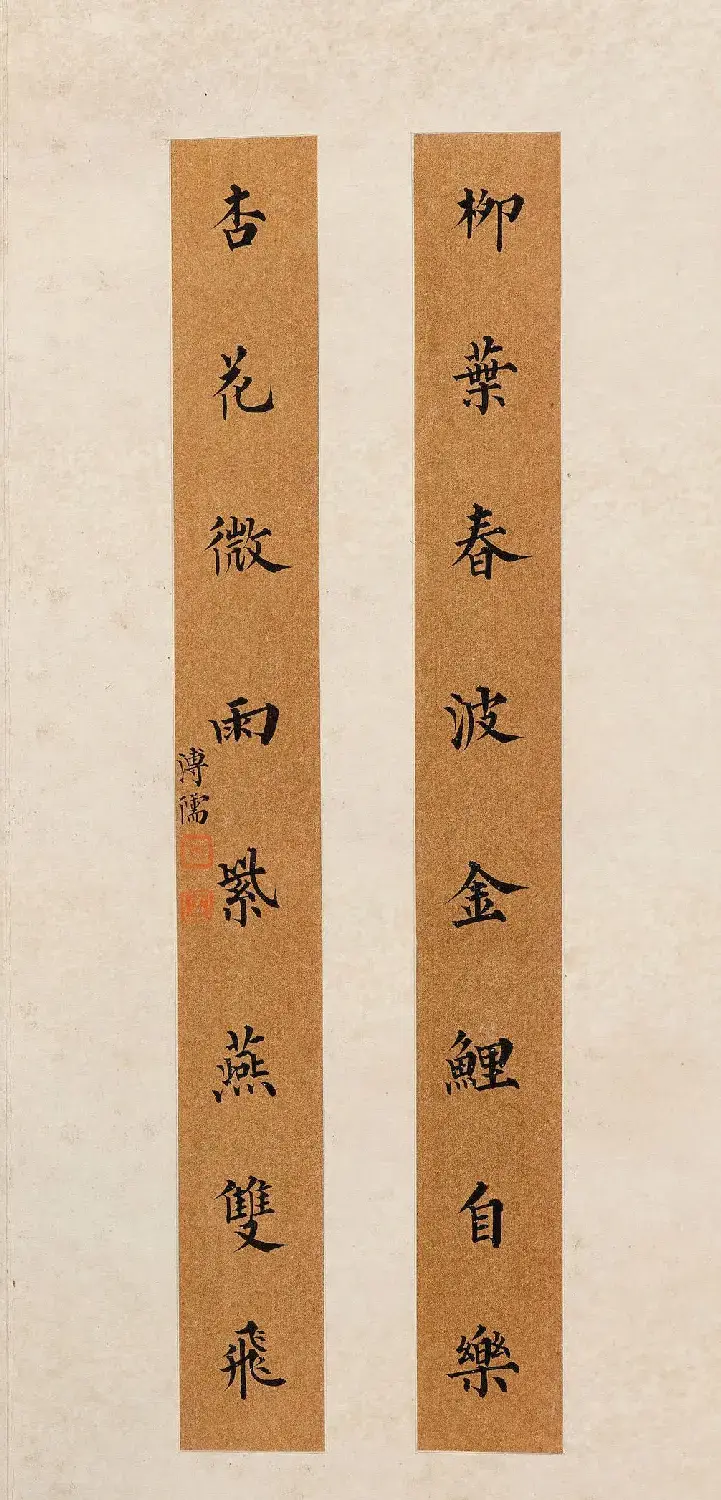 柳葉春波金鯉自樂
杏花微雨紫燕雙飛
溥儒